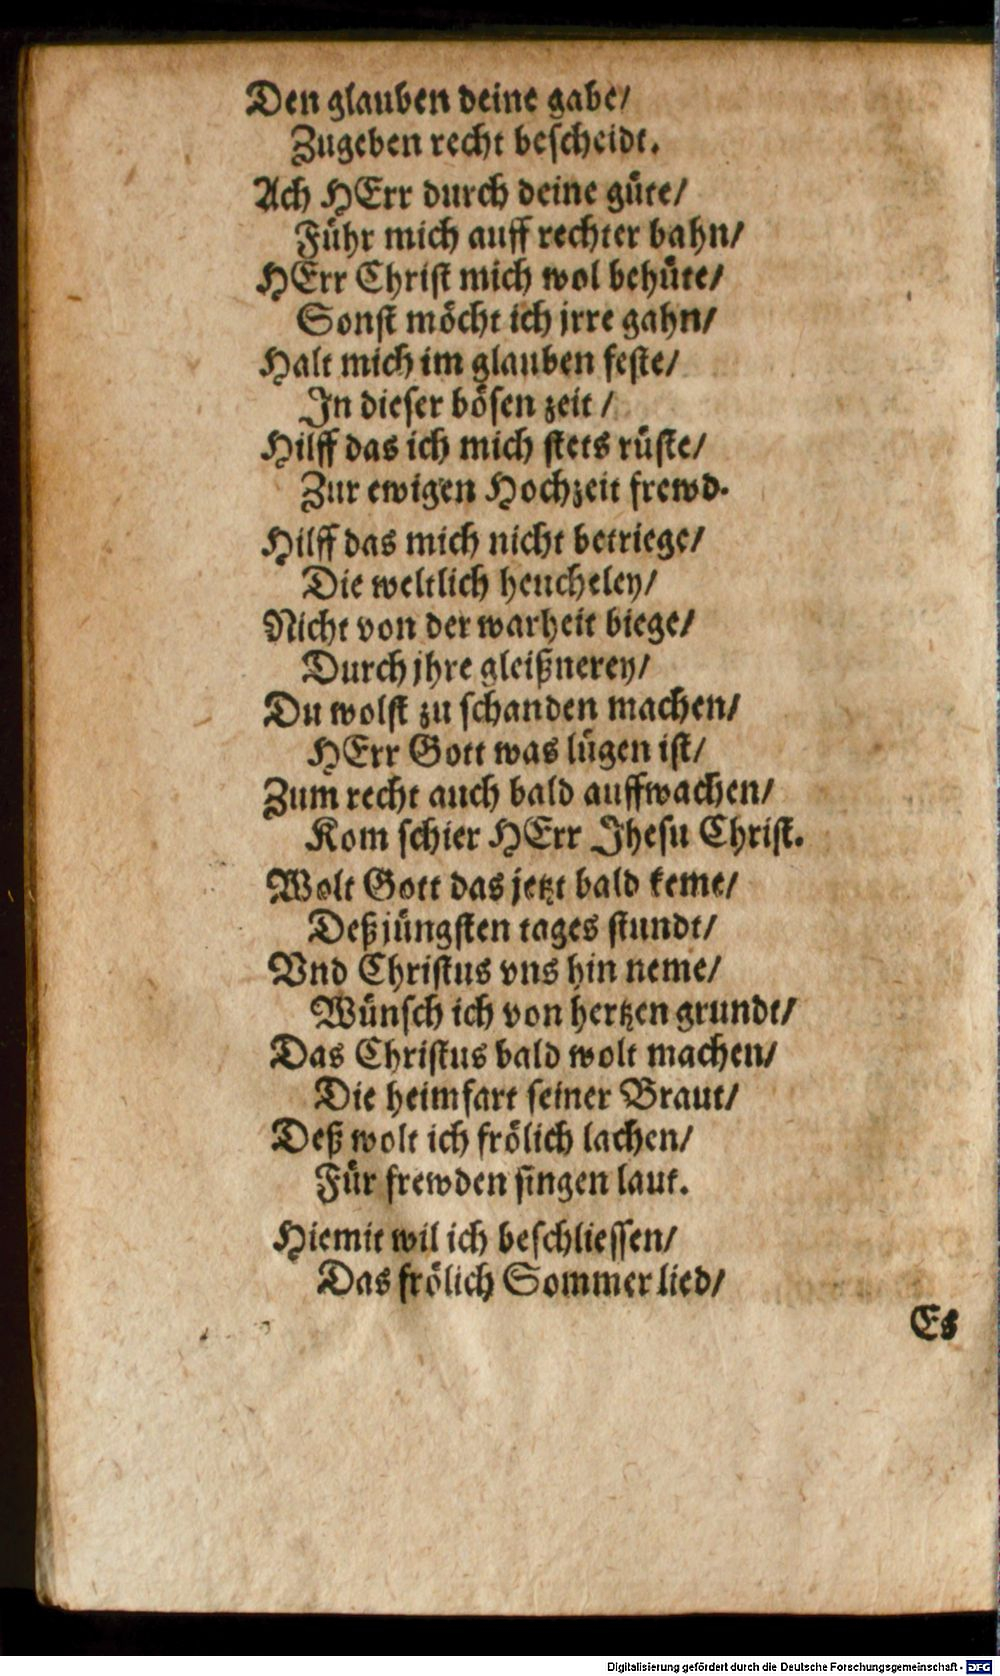 Den glauben deine gabe/
Zugeben recht bescheidt.
Ach HErr durch deine güte/
Führ mich auff rechter bahn/
HErr Christ mich wol behüte/
Sonst möcht ich jrre gahn/
Halt mich im glauben feste/
In dieser bösen zeit /
Hilff das ich mich stets rüste/
Zur ewigen Hochzeit frewd.
Hilff das mich nicht betriege/
Die weltlich heucheley/
Nicht von der warheit biege/
Durch jhre gleißnerey/
Du wolst zu schanden machen/
HErr Gott was lügen ist/
Zum recht auch bald auffwachen/
Kom schier HErr Jhesu Christ.
Wolt Gott das jetzt bald keme/
Deß jüngsten tages stundt/
Vnd Christus vns hin neme/
Wünsch ich von hertzen grundt/
Das Christus bald wolt machen/
Die heimfart seiner Braut/
Deß wolt ich frölich lachen/
Für frewden singen laut.
Hiemit wil ich beschliessen/
Das frölich Sommer lied/
Es
Digitalisierung gefördert durch die Deutsche Forschungsgemeinschaft - DFG